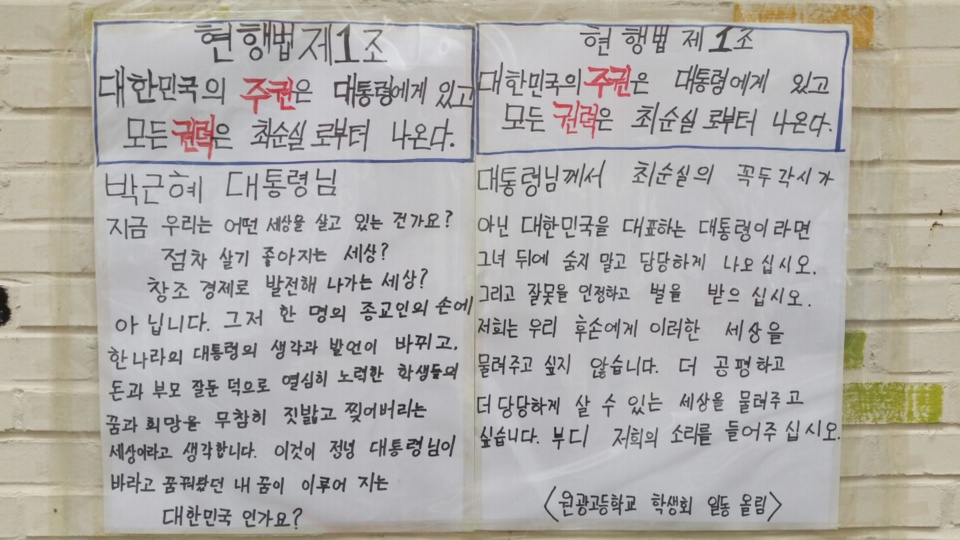 현 행법 제1조
대한민국의 주권은 대통령에게 있고
모든 권력은 최순실 로부터 나온다.
박근혜 대통령님
지금 우리는 어떤 세상을 살고 있는 건가요?
점차 살기 좋아지는 세상?
창조 경제로 발전해 나가는 세상?
아닙니다. 그저 한 명의 종교인의 손에
한나라의 대통령의 생각과 발언이 바뀌고,
돈과 부모 잘둔 덕으로 열심히 노력한 학생들의
꿈과 희망을 무참히 짓밟고 찢어버리는
세상이라고 생각합니다. 이것이 정녕 대통령님이
바라고 꿈꿔왔던 내 꿈이 이루어 지는
대한민국 인가요?
현 행법 제1조
대한민국의 주권은 대통령에게 있고
모든 권력은 최순실 로부터 나온다.
대통령님께서 최순실의 꼭두각시가
아닌 대한민국을 대표하는 대통령이라면
그녀 뒤에 숨지 말고 당당하게 나오십시오.
그리고 잘못을 인정하고 벌을 받으십시오.
저희는 우리 후손에게 이러한 세상을
물려주고 싶지 않습니다. 더 공평하고
더 당당하게 살 수 있는 세상을 물려주고
싶습니다. 부디 저희의 소리를 들어주십시오.
〈원광고등학교 학생회 일동 올림〉